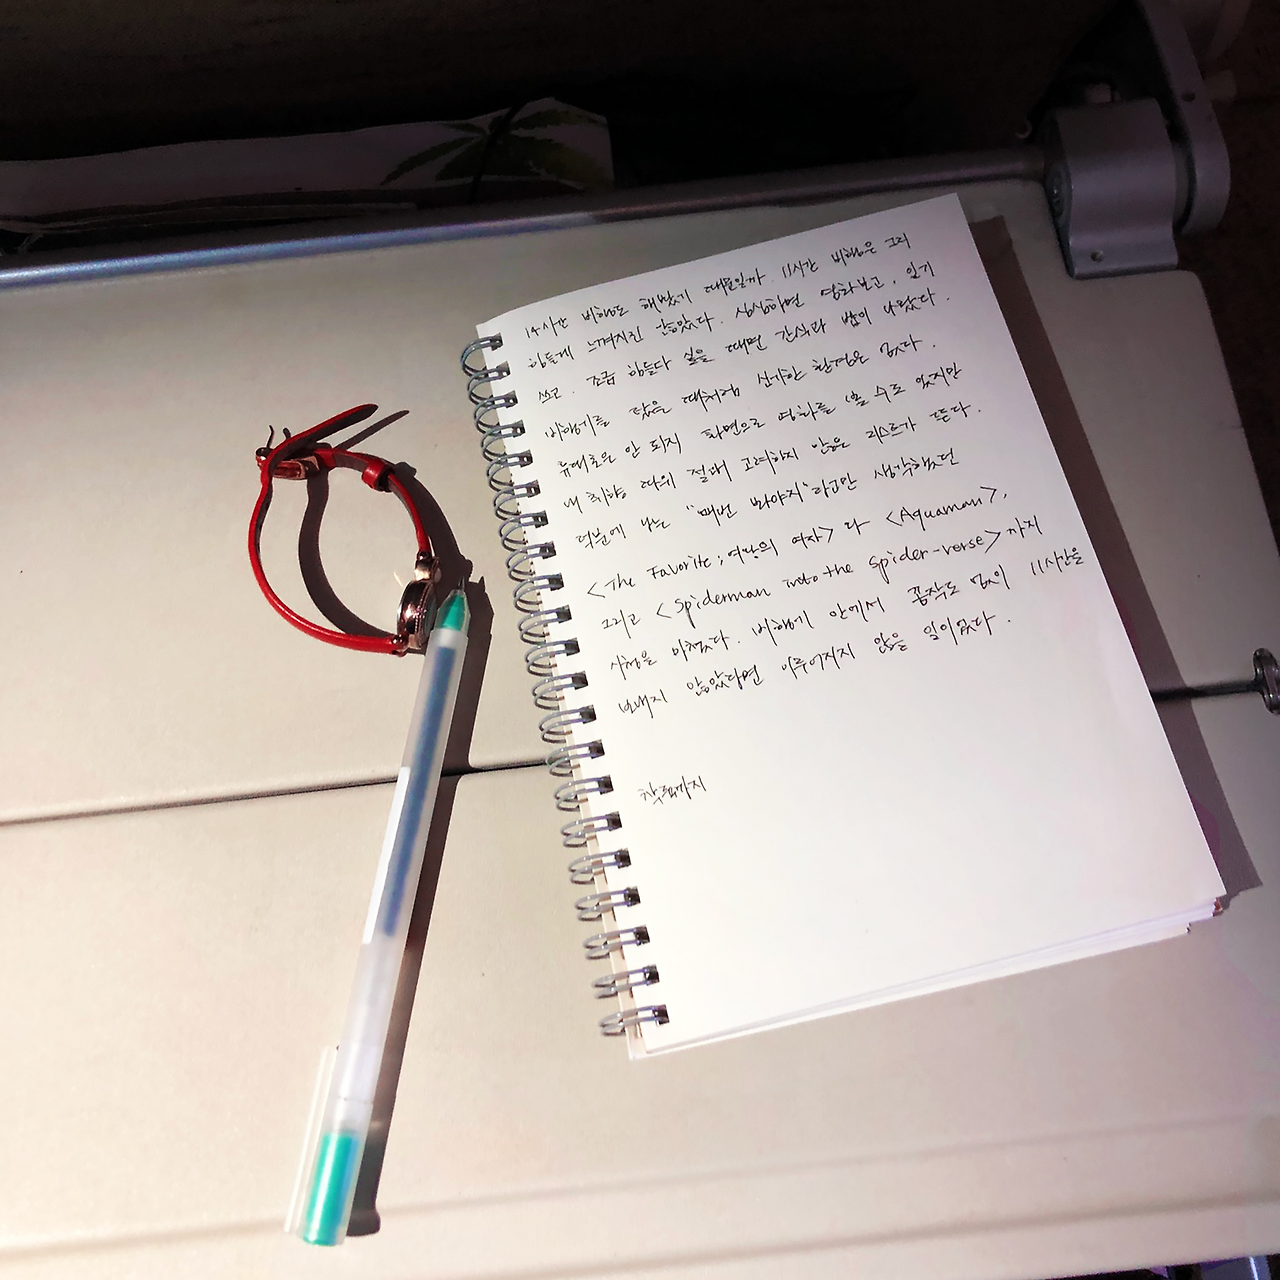 14시간 비행도 해봤기 때문일까. 11시간 비행은 그리
힘들게 느껴지진 않았다. 심심하면 영화보고, 일기
쓰고. 조금 힘들다 싶을 때면 간식과 밥이 나왔다.
비행기를 탔을 때처럼 신기한 환경은 없다.
휴대폰은 안 되지 화면으로 영화를 볼 수도 있지만
내 취향 따위 절대 고려하지 않은 리스트가 뜬다.
덕분에 나는 "매번 봐야지"라고만 생각했던
<The Favorite; 여왕의 여자> 다 <Aquaman>,
그리고 <Spiderman into the Spider-verse>까지
시청을 마쳤다. 비행기 안에서 꼼짝도 없이 11시간을
보내지 않았다면 이루어지지 않을 일이었다.
착륙까지